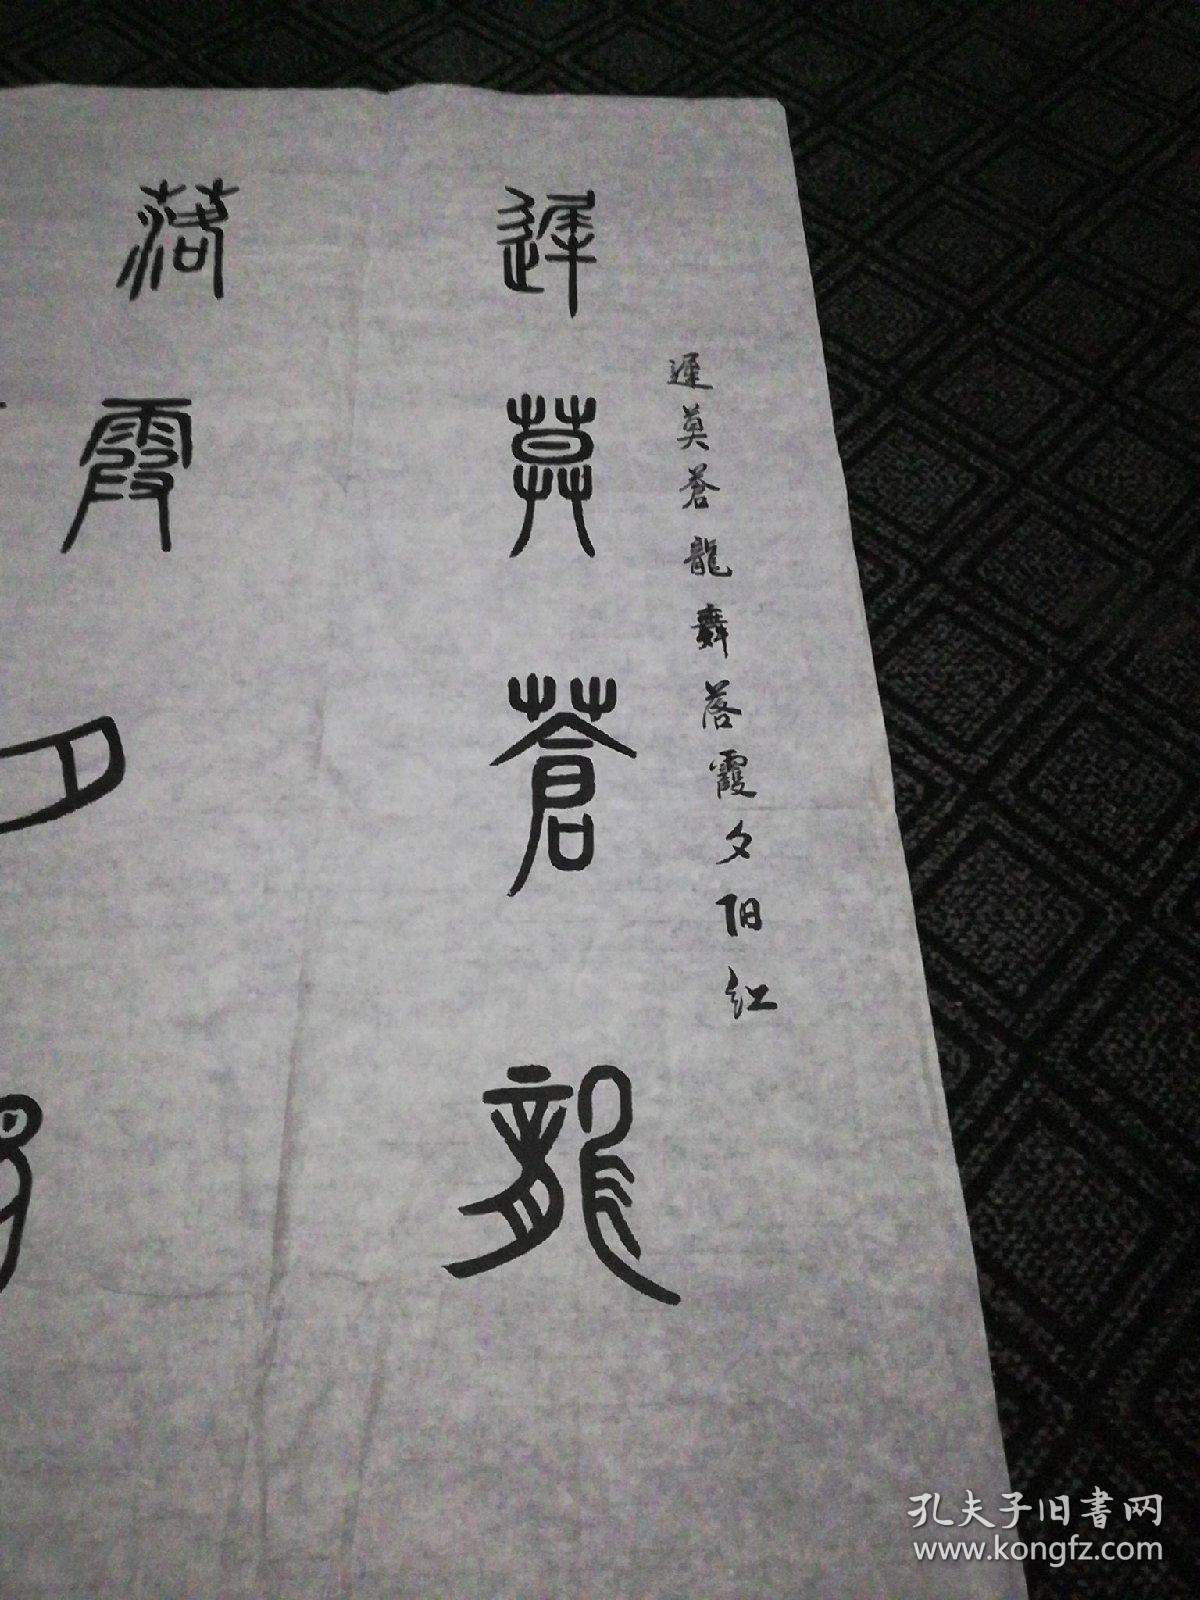 遲莫蒼龍舞落霞夕阳紅
遲莫蒼龍
落霞夕
孔夫子旧書网
www.kongfz.com